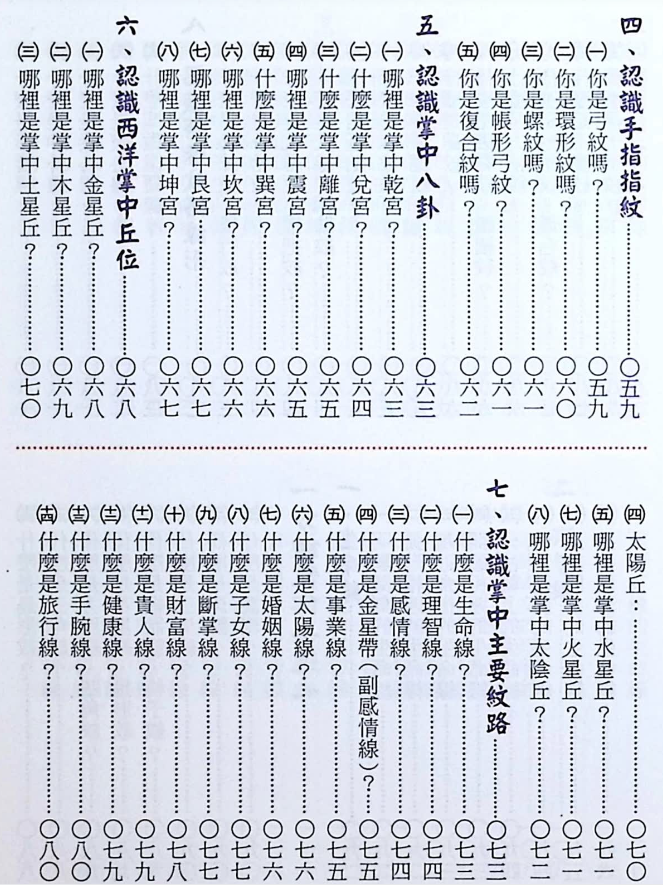 四、認識手指指紋……〇五九
㈠你是弓紋嗎？……〇五九
㈡你是環形紋嗎？……〇六〇
㈢你是螺紋嗎？……〇六一
㈣你是帳形弓紋？……〇六一
㈤你是復合紋嗎？……〇六二
五、認識掌中八卦……〇六三
㈠哪裡是掌中乾宮？……〇六三
㈡什麼是掌中兌宮？……〇六四
㈢什麼是掌中離宮？……〇六五
㈣哪裡是掌中震宮？……〇六五
㈤什麼是掌中巽宮？……〇六六
㈥哪裡是掌中坎宮？……〇六六
㈦哪裡是掌中艮宮？……〇六七
㈧哪裡是掌中坤宮？……〇六七
六、認識西洋掌中丘位……〇六八
㈠哪裡是掌中金星丘？……〇六八
㈡哪裡是掌中木星丘？……〇六九
㈢哪裡是掌中土星丘？……〇七〇
㈣太陽丘：……〇七〇
㈤哪裡是掌中水星丘？……〇七一
㈦哪裡是掌中火星丘？……〇七一
㈧哪裡是掌中太陰丘？……〇七二
七、認識掌中主要紋路……〇七三
㈠什麼是生命線？……〇七三
㈡什麼是理智線？……〇七四
㈢什麼是感情線？……〇七四
㈣什麼是金星帶（副感情線）？……〇七五
㈤什麼是事業線？……〇七五
㈥什麼是太陽線？……〇七六
㈦什麼是婚姻線？……〇七六
㈧什麼是子女線？……〇七七
㈨什麼是斷掌線？……〇七七
㈩什麼是財富線？……〇七八
(十一)什麼是貴人線？……〇七九
(十二)什麼是健康線？……〇七九
(十三)什麼是手腕線？……〇八〇
(十四)什麼是旅行線？……〇八〇